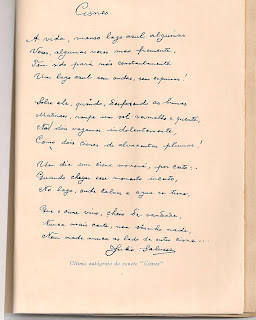 Cisnes
A vida, manso lago azul algumas
Vezes, algumas vezes mar fremente,
Tem sido para nós constantemente
Um lago azul sem ondas, sem espumas!
Sobre ele, quando, desfazendo as brumas
Matinais, rompe um sol vermelho e quente,
Nós dois vagamos indolentemente,
Como dois cisnes de alvacentas plumas!
Um dia um cisne morrerá, por certo:
Quando chegar esse momento incerto,
No lago, onde talvez a agua se tisne,
Que o cisne vivo, cheio de saudade,
Nunca mais cante, nem sósinho nade,
Nem nade nunca ao lado de outro cisne...
Julio Salusse
Ultimo autógrafo do soneto "Cisnes"